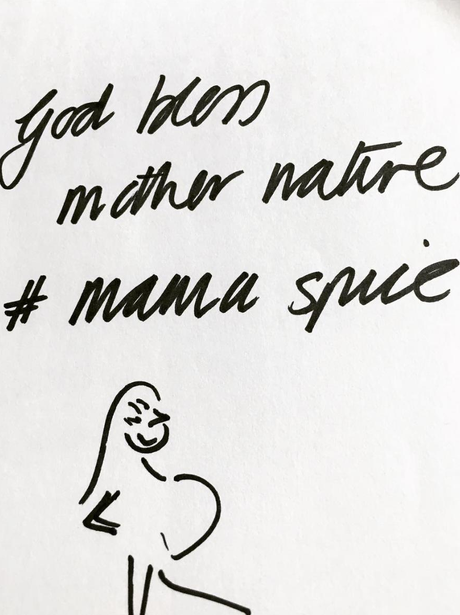 God bless
mother nature
# mama spice